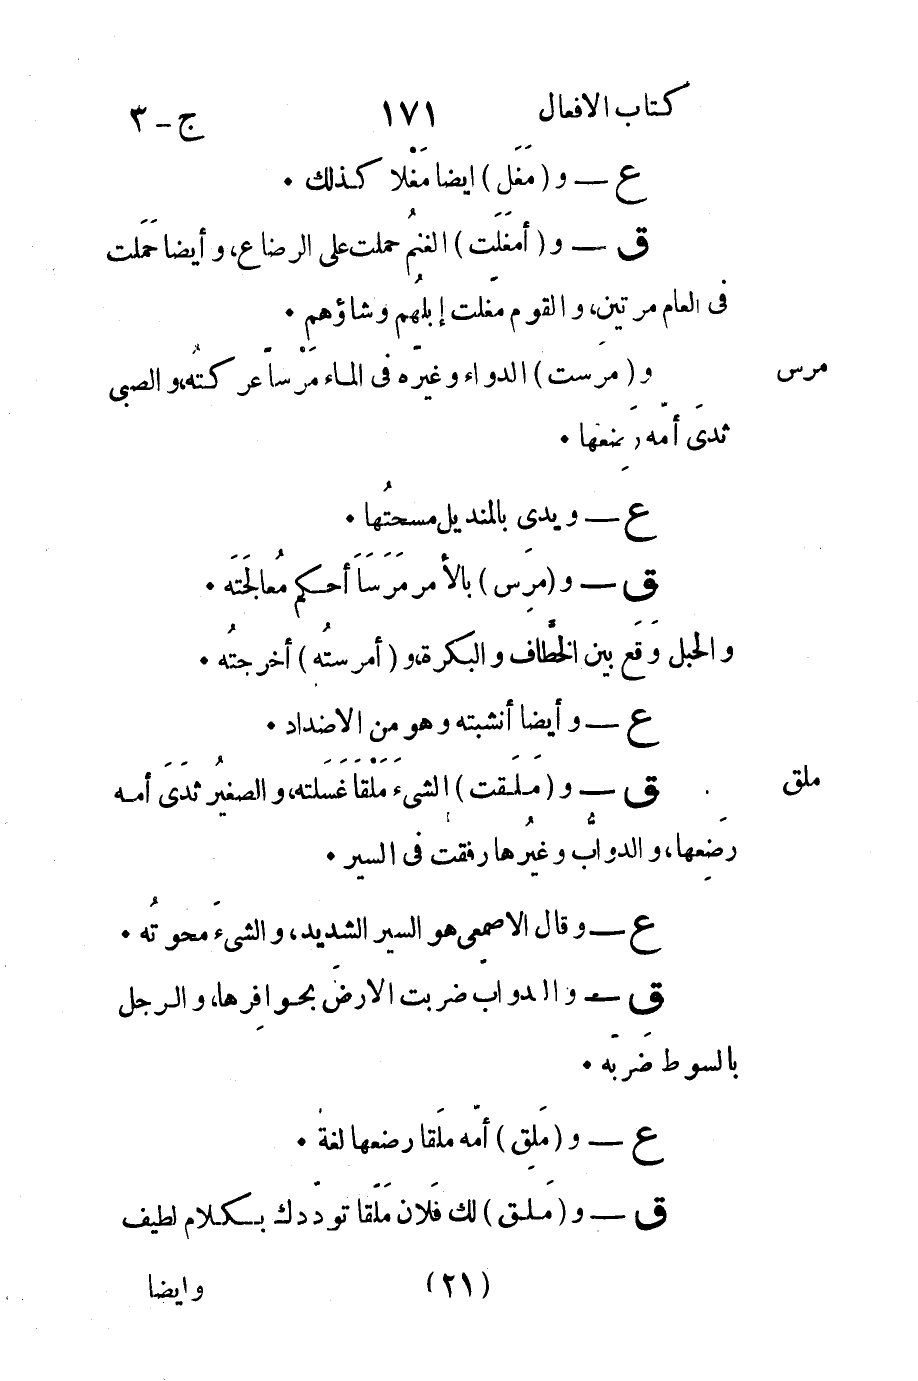 كتاب الافعال ١٧١ ج - ٣
ع — و (مَغَل) ايضا مَغْلا كذلك •
ق — و (أمغَلَت) الغنمُ حملت على الرضاع، و أيضا حَمَلت
فى العام مرتين، و القوم مغَلت إبلُهُم و شاؤهم •
مرس و (مرَست) الدواء و غيرَه فى الماء مَرْساً عركتُه، و الصبى
ثدىَ أمّه رَضِعها •
ع — و يدى بالمنديل مسحتُها •
ق — و (مرِس) بالأمر مَرَسَاً أحكم مُعالجَتَه •
و الحبل وَقَع بين الخُطّاف و البكرة، و (أمرستُه) أخرجتُه •
ع — و أيضا أنشبته و هو من الاضداد •
ملق ق — و (مَلَقت) الشىءَ مَلْقا غَسَلته، و الصغيرُ ثدَىَ أمه
رضِعها، و الدوابُّ و غيرُها رفقت فى السير •
ع — و قال الاصمعى هو السير الشديد، و الشىءَ محوتُه •
ق — و الدواب ضربت الارضَ بحوافِرها، و الرجل
بالسوط ضَربَه •
ع — و (مَلِق) أمّه ملَقا رضعها لغة •
ق — و (مَلِق) لك فلان مَلَقا تودّدك بكلام لطيف
(٢١) و ايضا